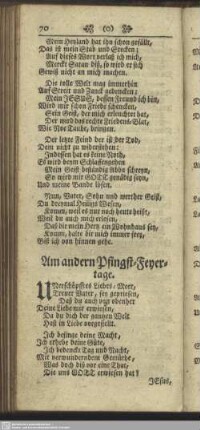 70 (o)
Mein Heyland hat ihn schon gefällt,
Das ist mein Stab und Stecken;
Auf dieses Wort verlaß ich mich,
Merckt Satan diß, so wird er sich
Gewiß nicht an mich machen.
Die tolle Welt mag immerhin
Auf Streit und Zanck gedencken;
Mein JESUS, dessen Freund ich bin,
Wird mir schon Friede schencken,
Sein Geist, der mich erleuchtet hat,
Der wird das rechte Liebes-Blat,
Wie Noe Taube, bringen.
Der letzte Feind der ist der Tod;
Dem nicht zu widerstehen:
Indessen hat es keine Noth,
Es wird beym Schlaffengehen
Mein Geist beständig Abba schreyn,
So wird mir GOTT genädig seyn,
Und meine Bande lösen.
Nun, Vater, Sohn und werther Geist,
Du dreymal Heiligs Wesen,
Komm, weil es nur noch heute heist,
Weil du auch mich erlesen,
Daß die mein Hertz ein Wohnhaus sey,
Komm, halte dir mich immer frey,
Biß ich von hinnen gehe.
Am andern Pfingst-Feyer-
tage.
UNerschöpftes Liebes-Meer,
Treuer Vater, sey gepriesen,
Daß du auch itzt ebenher
Deine Liebe mir erwiesen,
Da du dich der gantzen Welt
Hast in Liebe vorgestellt.
Ich besinge deine Macht,
Ich erhebe deine Güte,
Ich bedencke Tag und Nacht,
Mit verwunderndem Gemüthe,
Was doch diß vor eine That,
Die uns GOTT erwiesen hat!
JEsus,